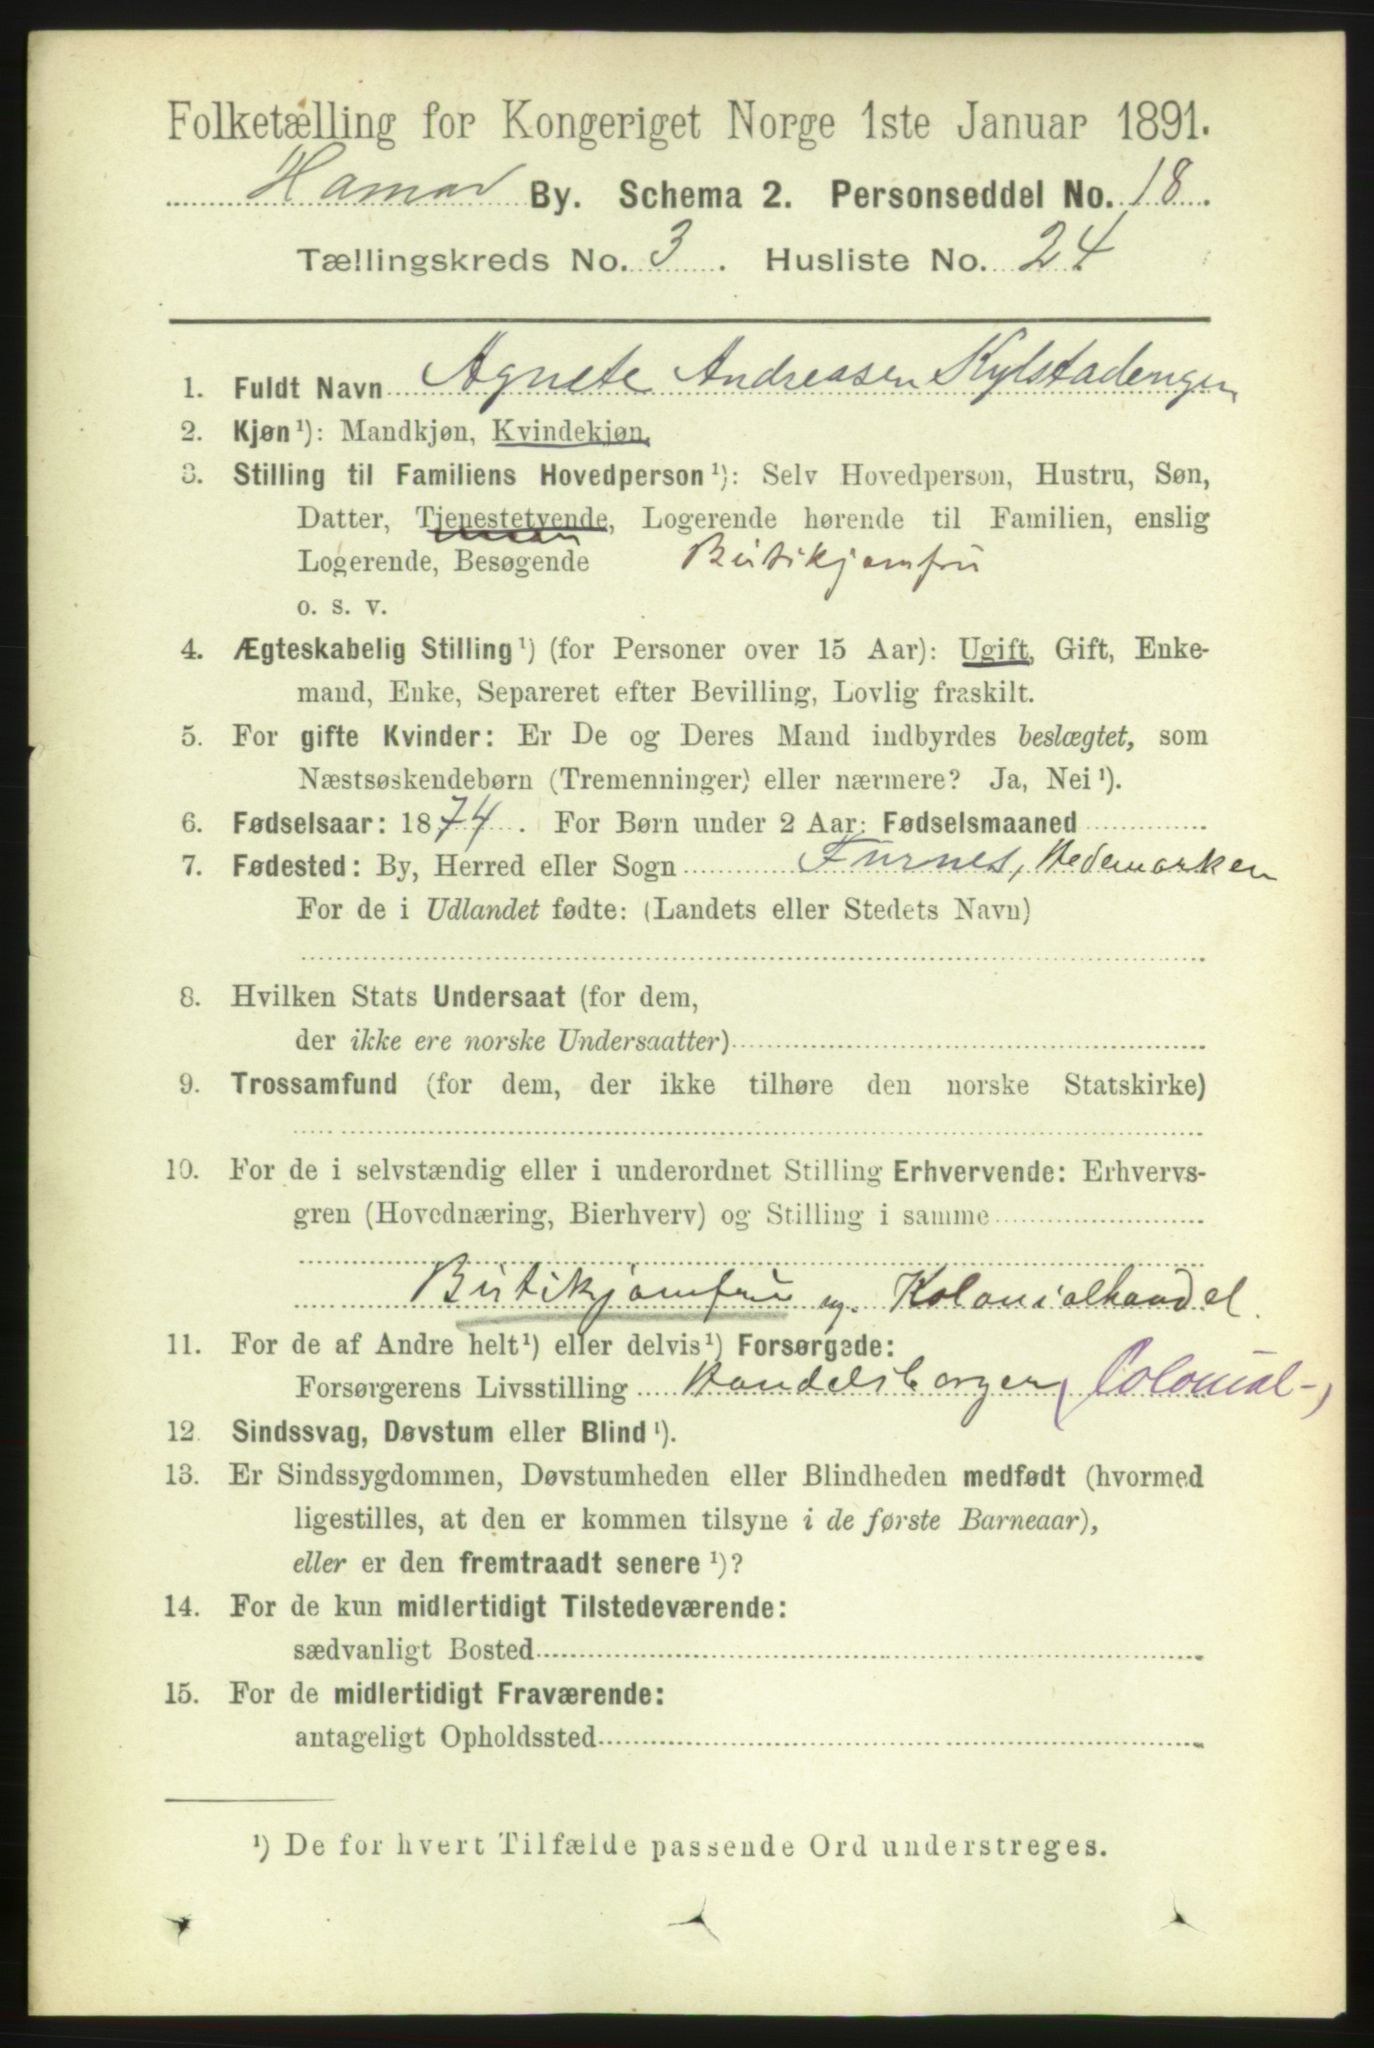 Folketælling for Kongeriget Norge 1ste Januar 1891.
Hamar By. Schema 2. Personseddel No. 18.
Tællingskreds No. 3. Husliste No. 24
1. Fuldt Navn Agnete Andreasen Kylstadengen
2. Kjøn ¹): Mandkjøn, Kvindekjøn.
3. Stilling til Familiens Hovedperson ¹): Selv Hovedperson, Hustru, Søn,
Datter, Tjenestetyende, Logerende hørende til Familien, enslig
Logerende, Besøgende Butikjomfru
o. s. v.
4. Ægteskabelig Stilling ¹) (for Personer over 15 Aar): Ugift, Gift, Enke-
mand, Enke, Separeret efter Bevilling, Lovlig fraskilt.
5. For gifte Kvinder: Er De og Deres Mand indbyrdes beslægtet, som
Næstsøskendebørn (Tremenninger) eller nærmere? Ja, Nei ¹).
6. Fødselsaar: 1874. For Børn under 2 Aar: Fødselsmaaned
7. Fødested: By, Herred eller Sogn Furnes, Hedemarken
For de i Udlandet fødte: (Landets eller Stedets Navn)
8. Hvilken Stats Undersaat (for dem,
der ikke ere norske Undersaatter)
9. Trossamfund (for dem, der ikke tilhøre den norske Statskirke)
10. For de i selvstændig eller i underordnet Stilling Erhvervende: Erhvervs-
gren (Hovednæring, Bierhverv) og Stilling i samme
Butikjomfru og. Kolonialhandel.
11. For de af Andre helt ¹) eller delvis ¹) Forsørgede:
Forsørgerens Livsstilling Handelsborger (Colonial-)
12. Sindssvag, Døvstum eller Blind ¹).
13. Er Sindssygdommen, Døvstumheden eller Blindheden medfødt (hvormed
ligestilles, at den er kommen tilsyne i de første Barneaar),
eller er den fremtraadt senere ¹)?
14. For de kun midlertidigt Tilstedeværende:
sædvanligt Bosted
15. For de midlertidigt Fraværende:
antageligt Opholdssted
¹) De for hvert Tilfælde passende Ord understreges.